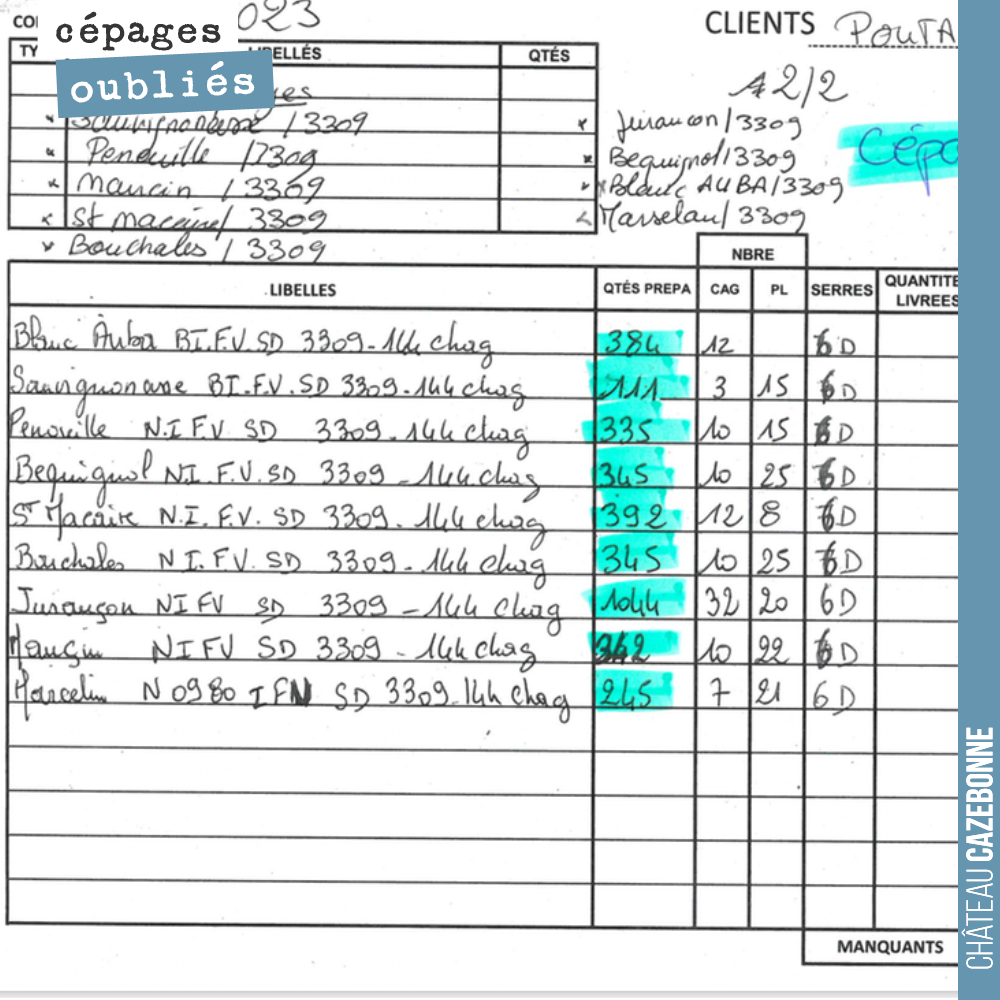 cépages
oubliés
023
CLIENTS POUTA
TY
LIBELLÉS QTÉS
A 2/2
Sauvignonasse / 3309
Penouille / 3309
Mancin / 3309
St macaire / 3309
Bouchales / 3309
Jurancon / 3309
Bequignol / 3309
Blanc AUBA / 3309
Marselan / 3309
Cépa
NBRE
LIBELLES QTÉS PREPA CAG PL SERRES QUANTITE LIVREES
Blanc Auba BI.F.V.SD 3309-144 chag 384 12 6D
Sauvignonasse BI.F.V.SD 3309-144 chag 111 3 15 6D
Penouille N.I F.V SD 3309-144 chag 335 10 15 6D
Bequignol N.I.F.V.SD 3309-144 chag 345 10 25 6D
St Macaire N.I.F.V.SD 3309-144 chag 392 12 8 6D
Bouchales N I.F.V SD 3309-144 chag 345 10 25 6D
Jurançon NI FV SD 3309-144 chag 1044 32 20 6D
Mançin NI FV SD 3309-144 chag 342 10 22 6D
Marcelin N 0980 I FN SD 3309-144 chag 245 7 21 6D
MANQUANTS
CHÂTEAU CAZEBONNE